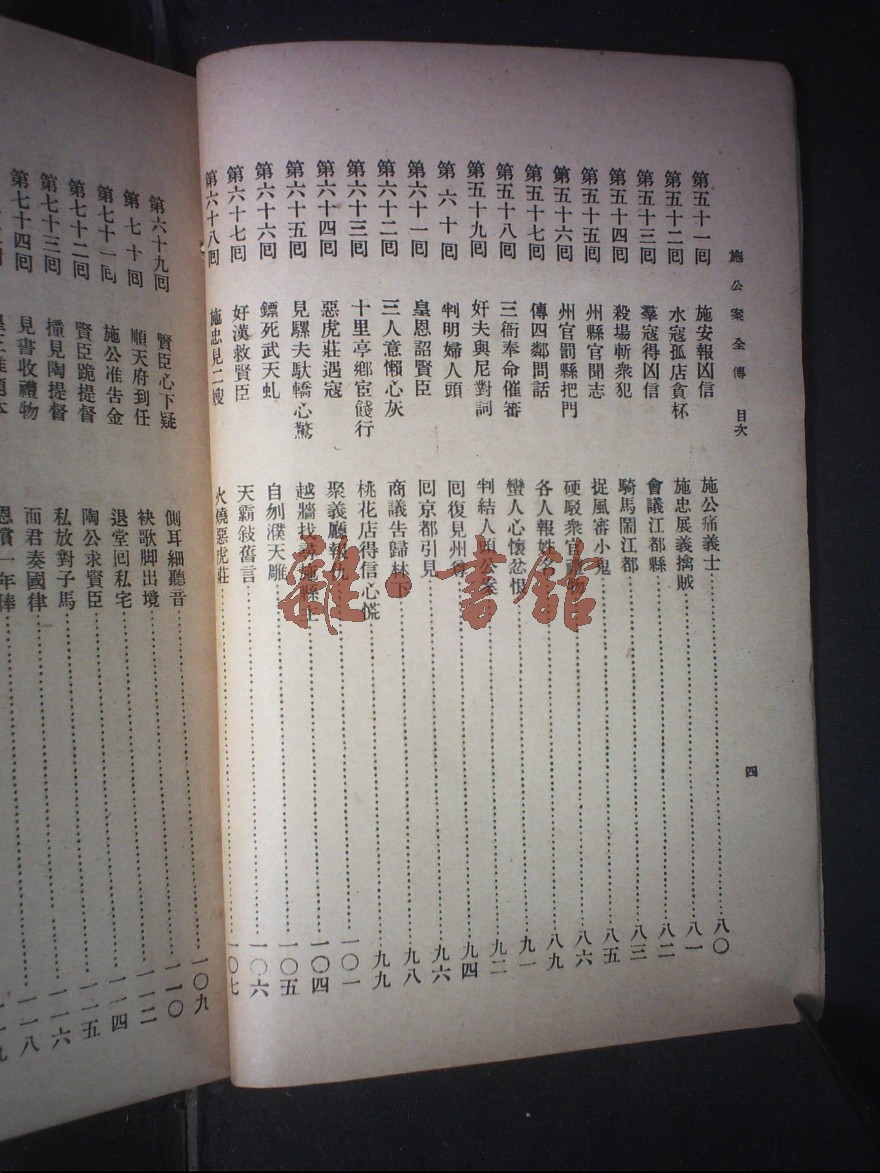 施公案全傳 目次
四
第五十一回 施安報凶信 施公痛義士 八〇
第五十二回 水寇孤店貪杯 施忠展義擒賊 八一
第五十三回 羣寇得凶信 會議江都縣 八二
第五十四回 殺場斬衆犯 騎馬鬧江都 八三
第五十五回 州縣官開志 捉風審小鬼 八五
第五十六回 州官罰縣把門 硬駁衆官 八六
第五十七回 傳四鄰問話 各人報姓名 八九
第五十八回 三衙奉命催審 蠻人心懷忿恨 九一
第五十九回 奸夫與尼對詞 判結人頭公案 九二
第六十回 判明婦人頭 回復見州尊 九四
第六十一回 皇恩詔賢臣 回京都引見 九六
第六十二回 三人意懶心灰 商議告歸林下 九八
第六十三回 十里亭鄉宦餞行 桃花店得信心慌 九九
第六十四回 惡虎莊遇寇 聚義廳報仇 一〇一
第六十五回 見騾夫馱轎心驚 越牆找尋施縣主 一〇四
第六十六回 鏢死武天虬 自刎濮天雕 一〇五
第六十七回 好漢救賢臣 天霸敍舊言 一〇六
第六十八回 施忠見二嫂 火燒惡虎莊 一〇七
第六十九回 賢臣心下疑 側耳細聽音 一〇九
第七十回 順天府到任 秧歌脚出境 一一〇
第七十一回 施公准告金 退堂回私宅 一一二
第七十二回 賢臣跪提督 陶公求賢臣 一一四
第七十三回 撞見陶提督 私放對子馬 一一五
第七十四回 見書收禮物 面君奏國律 一一六
恩賞一年俸 一一八
雜·書館